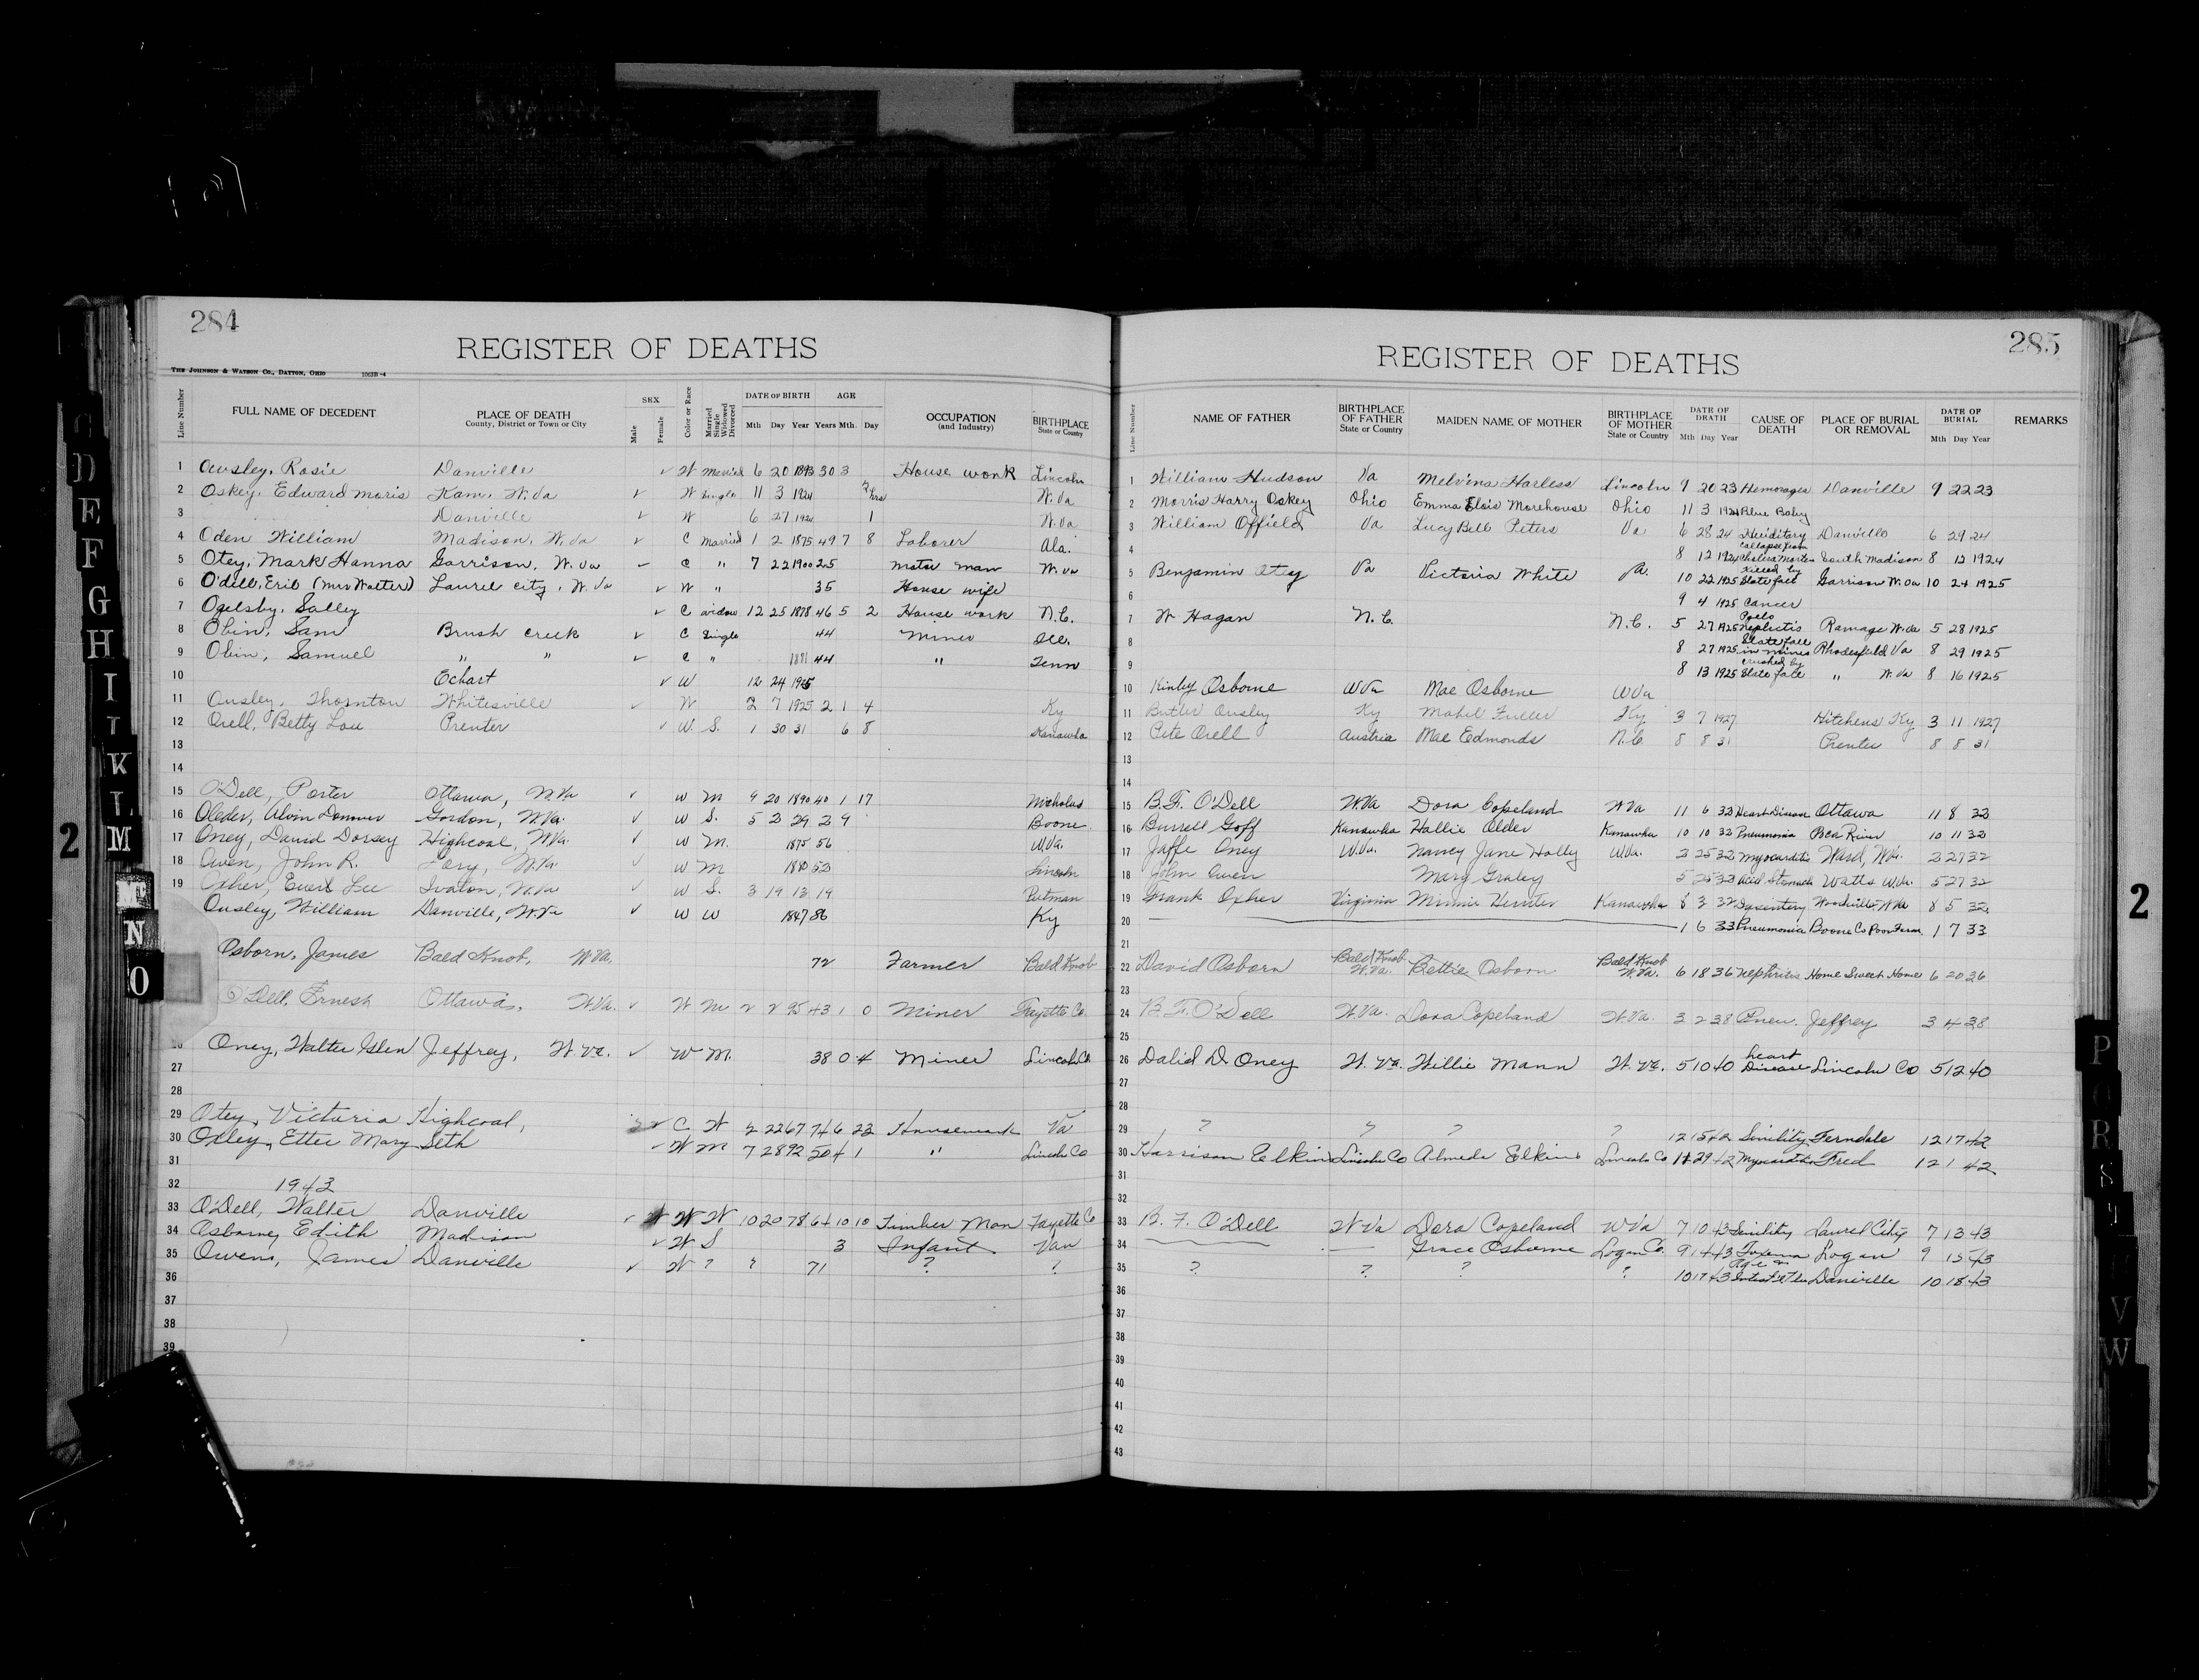 284
REGISTER OF DEATHS
THE JOHNSON & WATSON CO., DAYTON, OHIO 1063B-4
Line Number FULL NAME OF DECEDENT PLACE OF DEATH County, District or Town or City SEX Male Female Color or Race Married Single Widowed Divorced DATE OF BIRTH Mth Day Year AGE Years Mth. Day OCCUPATION (and Industry) BIRTHPLACE State or County
1 Ousley, Rosie Danville ✓ W Married 6 20 1893 30 3 House work Lincoln
2 Oskey, Edward Moris Kam. W. Va ✓ W Single 11 3 1924 hrs W. Va
3 Danville ✓ W 6 27 1924 1 W. Va
4 Oden William Madison, W. Va ✓ C Married 1 2 1875 49 7 8 Laborer Ala.
5 Otey, Mark Hanna Garrison, W. Va ✓ C " 7 22 1900 25 Motor man W. Va
6 O'dell, Erie (Mrs Walter) Laurel City, W. Va ✓ W " 35 House wife
7 Ogelsby, Sally ✓ C widow 12 25 1878 46 5 2 House work N.C.
8 Obin, Sam Brush Creek ✓ C Single 44 Miner
9 Obin, Samuel " " ✓ C " 1881 44 " Tenn
10 Echart ✓ W 12 24 1925
11 Ousley, Thornton Whitesville ✓ W 2 7 1925 2 1 4 Ky
12 Orell, Betty Lou Prenter ✓ W. S. 1 30 31 6 8 Kanawha
13
14
15 O'Dell, Porter Ottawa, W. Va ✓ W M 9 20 1890 40 1 17 Nicholas
16 Oleder, Alvin Gordon, W. Va. ✓ W S. 5 2 29 2 9 Boone
17 Oney, David Dorsey Highcoal, W. Va. ✓ W M. 1875 56 W. Va.
18 Owen, John R. W. Va. ✓ W M 1880 52 Lincoln
19 Oxher, Lee Ivaton, W. Va ✓ W S. 3 19 13 19 Putman
Ousley, William Danville, W. Va ✓ W W 1847 86 Ky
Osborn, James Bald Knob, W. Va. 72 Farmer Bald Knob
O'Dell, Ernest Ottawa, W. Va. ✓ W M 2 2 95 43 1 0 Miner Fayette Co.
Oney, Walter Glen Jeffrey, W. Va. ✓ W M. 38 0 4 Miner Lincoln Co
27
28
29 Otey, Victoria Highcoal, ✓ C W 2 22 67 74 6 23 Housework Va
30 Oxley, Ettie Mary Seth ✓ W M 7 28 92 50 4 1 " Lincoln Co
31
32 1943
33 O'Dell, Walter Danville ✓ W W 10 20 78 64 10 10 Timber Man Fayette Co
34 Osborne, Edith Madison ✓ W S 3 Infant Van
35 Owens, James Danville ✓ W ? ? 71 ? ?
36
37
38
39
285
REGISTER OF DEATHS
Line Number NAME OF FATHER BIRTHPLACE OF FATHER State or Country MAIDEN NAME OF MOTHER BIRTHPLACE OF MOTHER State or Country DATE OF DEATH Mth Day Year CAUSE OF DEATH PLACE OF BURIAL OR REMOVAL DATE OF BURIAL Mth Day Year REMARKS
1 William Hudson Va Melvina Harless Lincoln 9 20 23 Hemorages Danville 9 22 23
2 Morris Harry Oskey Ohio Emma Elois Morehouse Ohio 11 3 1924 Blue Baby
3 William Offield Va Lucy Bell Peters Va 6 28 24 Heriditary Danville 6 29 24
4 8 12 1924 Collapse from Cholera Morbus South Madison 8 12 1924
5 Benjamin Otey Va Victoria White Va. 10 22 1925 Killed by Slate fall Garrison W. Va 10 24 1925
6 9 4 1925 Cancer
7 W. Hagan N.C. N.C. 5 27 1925 Ramage W. Va 5 28 1925
8 8 27 1925 Slate fall in mines Va 8 29 1925
9 8 13 1925 crushed by Slate fall " W. Va 8 16 1925
10 Kinley Osborne W Va Mae Osborne W Va
11 Butler Ousley Ky Mabel Fuller Ky 3 7 1927 Hitchens Ky 3 11 1927
12 Pete Orell Austria Mae Edmonds N.C. 8 8 31 Prenter 8 8 31
13
14
15 B.F. O'Dell W. Va Dora Copeland W Va 11 6 32 Heart Disease Ottawa 11 8 32
16 Burrell Goff Kanawha Hallie Older Kanawha 10 10 32 Pneumonia Pea River 10 11 32
17 Jaffe Oney W. Va. Nancy Jane Holly W. Va. 2 25 32 Myocarditis Ward, W. Va. 2 27 32
18 John Owen Mary Graley 5 25 32 Acid Stomach Watts W. Va. 5 27 32
19 Frank Oxher Virginia Minnie Hunter Kanawha 8 3 32 Dysentery W. Va 8 5 32
20 1 6 33 Pneumonia Boone Co Poor Farm 1 7 33
21
22 David Osborn Bald Knob W. Va. Bettie Osborn Bald Knob W. Va. 6 18 36 Nephritis Home Sweet Home 6 20 36
23
24 B. F. O'Dell W. Va. Dora Copeland W. Va. 3 2 38 Pneu. Jeffrey 3 4 38
25
26 David D. Oney W. Va. Willie Mann W. Va. 5 10 40 heart Disease Lincoln Co 5 12 40
27
28
29 ? ? ? ? 12 15 42 Senility Ferndale 12 17 42
30 Harrison Elkins Lincoln Co Almeda Elkins Lincoln Co 11 29 42 Myocarditis Fred 12 1 42
31
32
33 B. F. O'Dell W Va Dora Copeland W Va 7 10 43 Senility Laurel City 7 13 43
34 Grace Osborne Logan Co. 9 14 43 Toxema Logan 9 15 43
35 ? ? ? ? 10 17 43 Danville 10 18 43
36
37
38
39
40
41
42
43
2
2